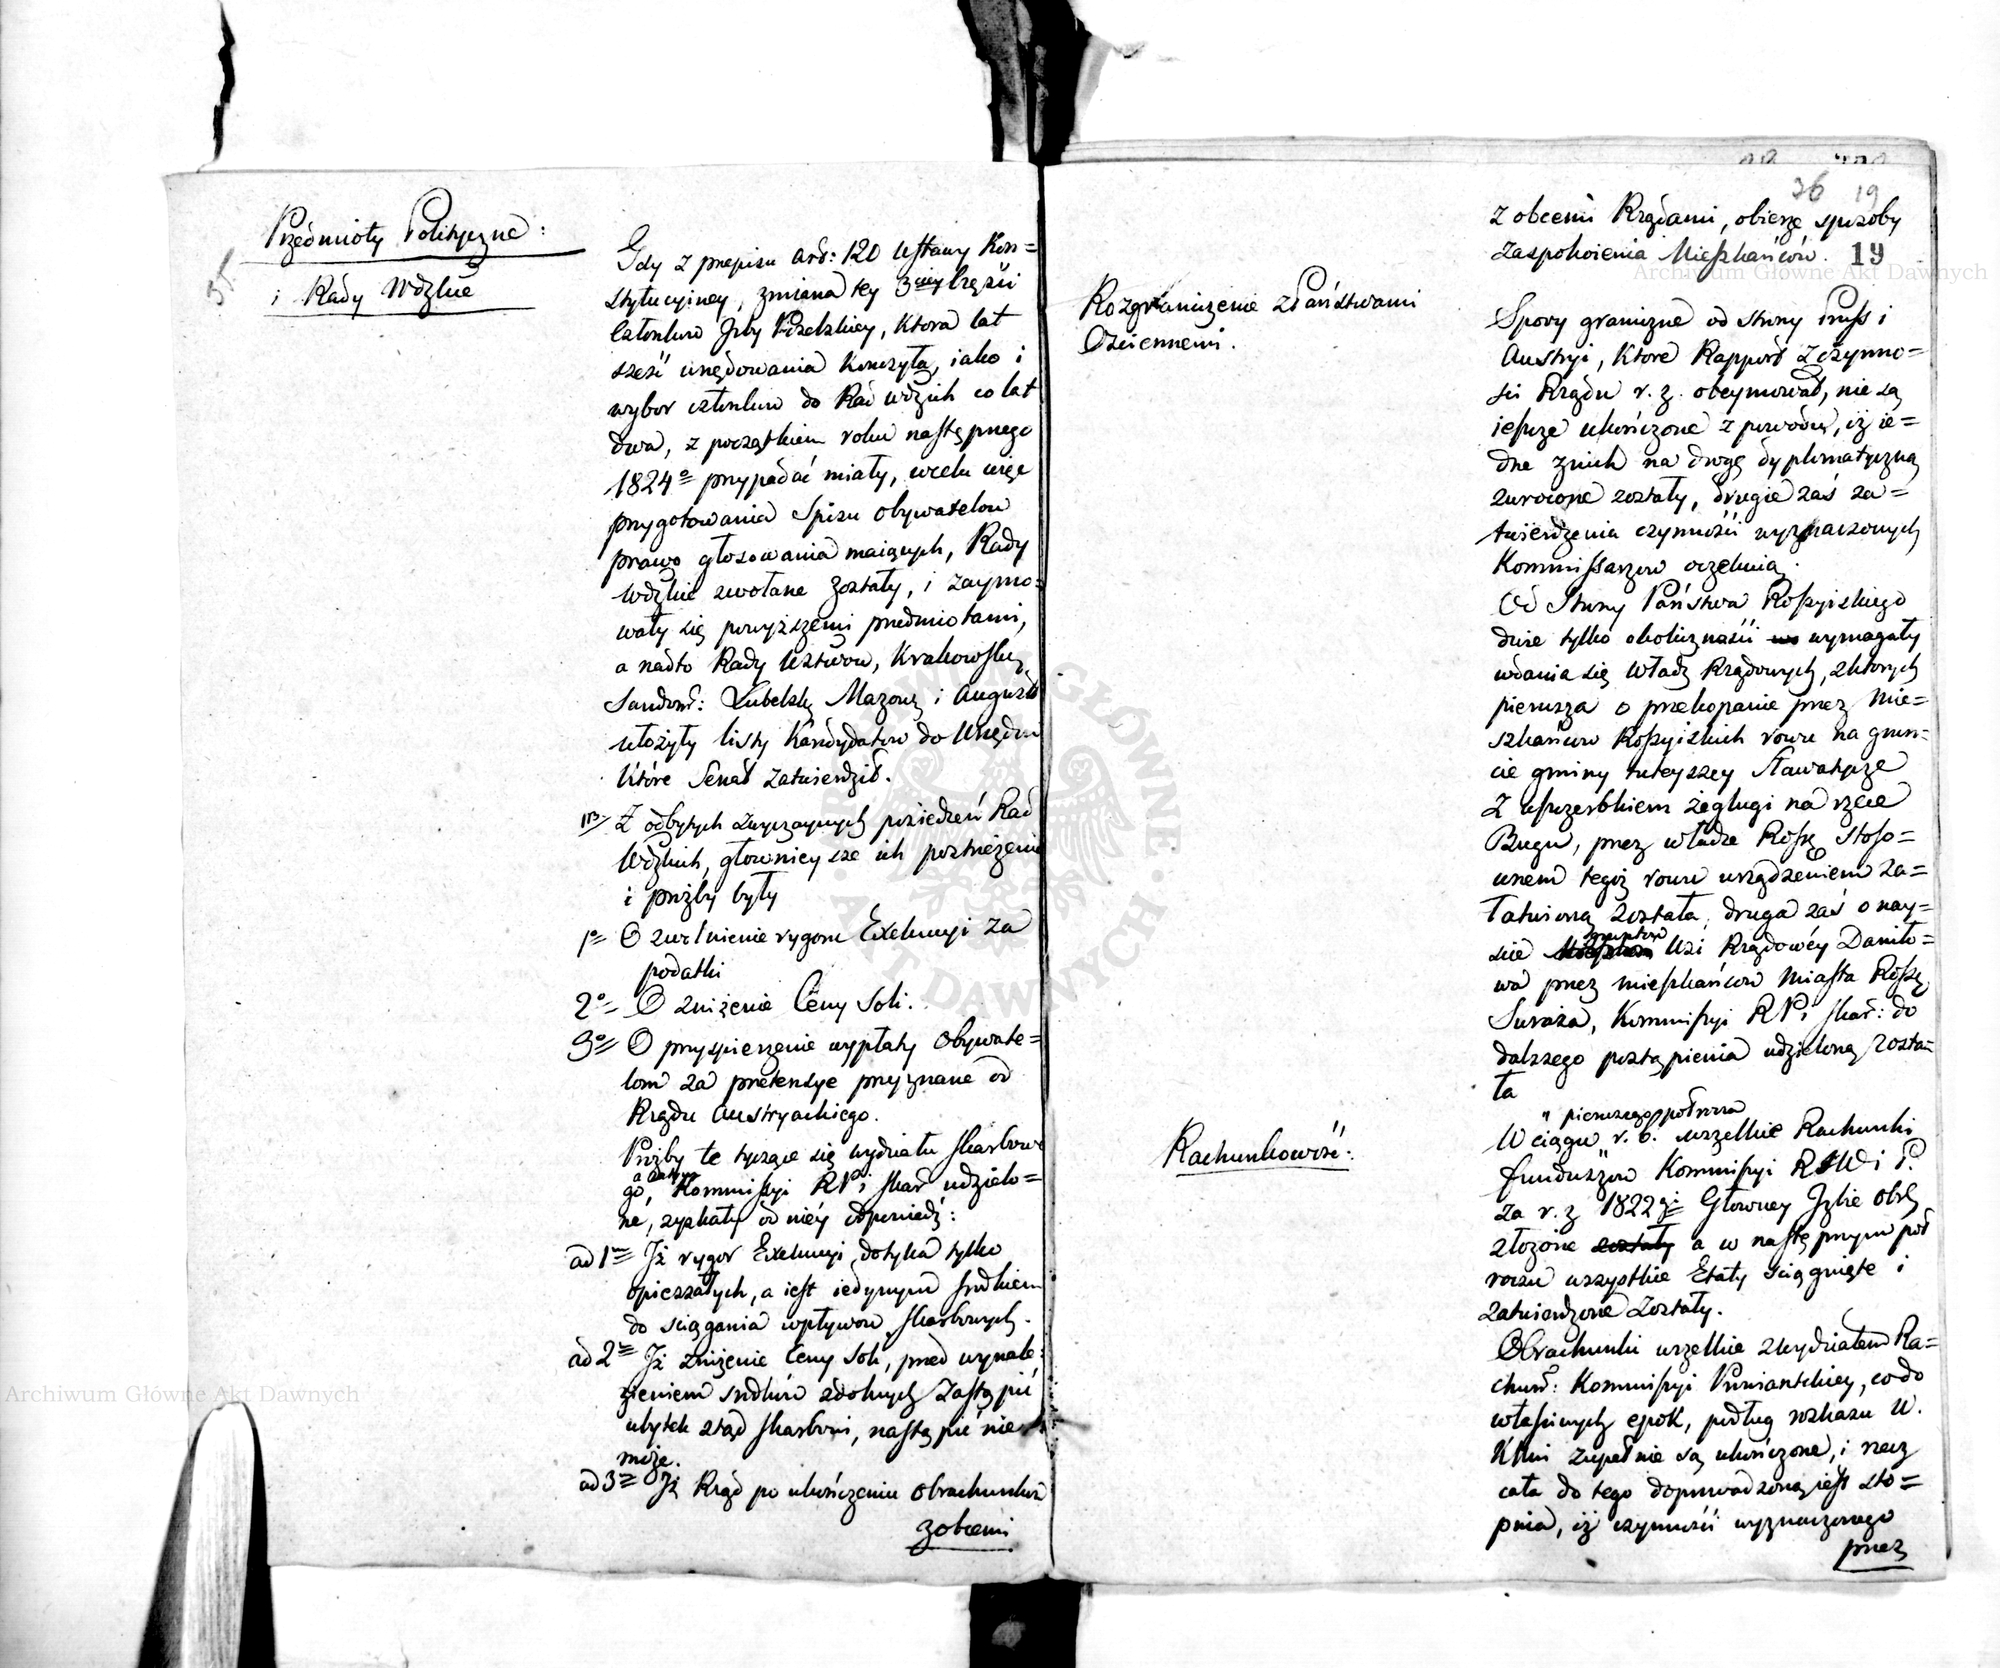 Przedmioty Polityczne:
i Rady Wdzkie
Gdy z przepisu art: 120 Ustawy Kon=
stytucyiney, zmiana tey 3ciey części
Członków Izby Poselskiey, ktora lat
sześć urzędowania kończyła, iako i
wybor członków do Rad wdzkich co lat
dwa, z początkiem roku następnego
1824º przypadać miały, w celu więc
przygotowania Spisu obywatelow
prawo głosowania maiących, Rady
Wdzkie zwołane zostały, i zaymo=
wały się powyższemi przedmiotami,
a nadto Rady Wdztwow, Krakowsky
Sandom: Lubelsky Mazow: i August
ułożyły listy Kandydatow do Urzędow
które Senat zatwierdził.
Z odbytych zwyczaynych posiedzeń Rad
Wdzkich, głownieysze ich postrzeżenia
i prozby były
1º O zwolnienie rygoru Exekucyi za
podatki
2º O zniżenie Ceny Soli.
3º O przyspieszenie wypłaty Obywate=
lom za pretensye przyznane od
Rządu Austryackiego.
Prozby te tyczące się wydziału Skarbowe
go, Kommissyi RP i Skar udzielo=
ne, zyskały od niéy odpowiedź:
ad 1m Iż rygor Exekucyi dotyka tylko
opieszałych, a iest iedynym srodkiem
do sciągania wpływow skarbowych.
ad 2m Iż zniżenie Ceny Soli, przed wynale=
zieniem srodków zdolnych zastąpić
ubytek ztąd skarbowi, nastąpić nie
może.
ad 3m Iż Rząd po ukończeniu Obrachunków
z obcemi
36 19
z obcemi Rządami, obierze sposoby
zaspokoienia Mieszkańców. 19
Rozgraniczenie z Państwami
Ościennemi.
Spory graniczne od strony Pruss i
Austryi, ktore Rapport z czynno=
ści Rządu r. z. obeymował, nie są
ieszcze ukończone z powodu, iż ie=
dne z nich na drogę dyplomatyczną
zwrócone zostały, drugie zaś za=
twierdzenia czynności wyznaczonych
Kommissarzow oczekuią.
Od Strony Państwa Rossyiskiego
dwie tylko okoliczności wymagały
udania się Władz Rządowych, z ktorych
pierwsza o przekopanie przez Mie=
szkańcow Rossyiskich rowu na grun=
cie gminy tuteyszey Sławatycze
z uszczerbkiem żeglugi na rzece
Bugu, przez władze Rossy: stoso=
wnem tegoż rowu urządzeniem za=
łatwioną została, druga zaś o nay=
ście gruntow Wsi Rządowéy Daniło=
wa przez mieszkańcow Miasta Rossy:
Suraża, Kommissyi RP i Skar: do
dalszego postąpienia udzieloną zosta=
ła
Rachunkowość:
pierwszego półrocza
W ciągu r. b. wszelkie Rachunki
funduszow Kommissyi RSWi P.
za r. z 1822gi Głowney Izbie Obr:
złożone zostały a w następnym pół
roczu wszystkie Etaty ściągnięte i
zatwierdzone zostały.
Obrachunki wszelkie z wydziałem Ra=
chun: Kommissyi Umiarkiey, co do
właściwych epok, podług rozkazu W.
Xcia zupełnie są ukończone, i rzecz
cała do tego doprowadzoną iest sto=
pnia, iż czynności wyznaczonego
przez
Archiwum Główne Akt Dawnych
Archiwum Główne Akt Dawnych
ARCHIWUM GŁÓWNE AKT DAWNYCH